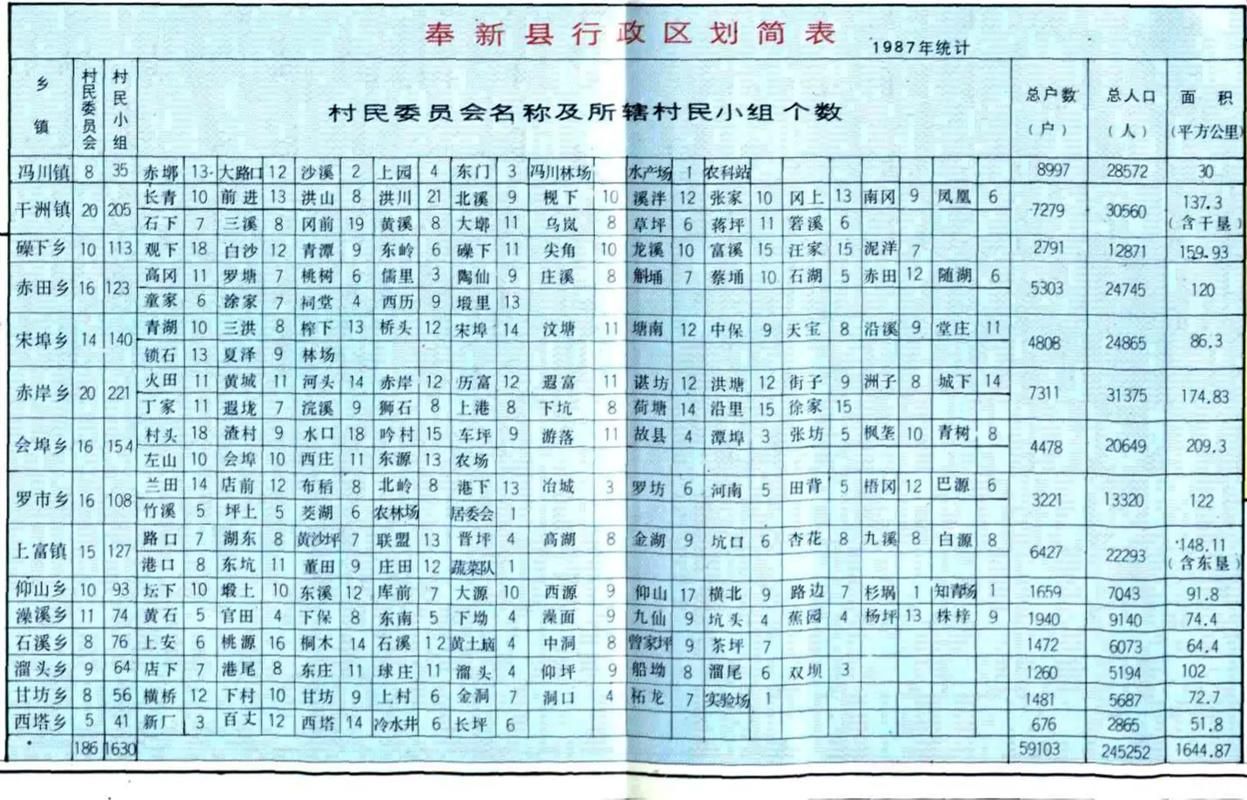 奉新县行政区划简表
1987年统计
乡镇 村民委员会 村民小组 村民委员会名称及所辖村民小组个数 总户数（户） 总人口（人） 面积（平方公里）
冯川镇 8 35 赤塅 13 大路口 12 沙溪 2 上园 4 东门 3 冯川林场 水产场 1 农科站 8997 28572 30
干洲镇 20 205 长青 10 前进 13 洪山 8 洪川 21 北溪 9 枧下 10 溪泮 12 张家 10 冈上 13 南冈 9 凤凰 6 7279 30560 137.3（含干垦）
石下 7 三溪 8 冈前 19 黄溪 8 大塅 11 乌岚 8 草坪 6 蒋坪 11 箬溪 6
磜下乡 10 113 观下 18 白沙 12 青潭 9 东岭 6 磜下 11 尖角 10 龙溪 10 富溪 15 汪家 15 泥洋 7 2791 12871 159.93
赤田乡 16 123 高冈 11 罗塘 7 桃树 6 儒里 3 陶仙 9 庄溪 8 斛埇 7 蔡埇 10 石湖 5 赤田 12 随湖 6 5303 24745 120
童家 6 涂家 7 祠堂 4 西历 9 塅里 13
宋埠乡 14 140 青湖 10 三洪 8 榨下 13 桥头 12 宋埠 14 汶塘 11 塘南 12 中保 9 天宝 8 沿溪 9 堂庄 11 4808 24865 86.3
锁石 13 夏泽 9 林场
赤岸乡 20 221 火田 11 黄城 11 河头 14 赤岸 12 历富 12 遐富 11 谌坊 12 洪塘 12 街子 9 洲子 8 城下 14 7311 31375 174.83
丁家 11 遐垅 7 浣溪 9 狮石 8 上港 8 下坑 8 荷塘 14 沿里 15 徐家 15
会埠乡 16 154 村头 18 渣村 9 水口 18 吟村 15 车坪 9 游落 11 故县 4 潭埠 3 张坊 5 枫垄 10 青树 8 4478 20649 209.3
左山 10 会埠 10 西庄 11 东源 13 农场
罗市乡 16 108 兰田 14 店前 12 布稻 8 北岭 8 港下 13 冶城 3 罗坊 6 河南 5 田背 5 梧冈 12 巴源 6 3221 13320 122
竹溪 5 坪上 5 茭湖 6 农林场 居委会 1
上富镇 15 127 路口 7 湖东 8 黄沙坪 7 联盟 13 晋坪 4 高湖 8 金湖 9 坑口 6 杏花 8 九溪 8 白源 8 6427 22293 148.11（含东垦）
港口 8 东坑 11 董田 9 庄田 12 蔬菜队 1
仰山乡 10 93 坛下 10 塅上 10 东溪 12 库前 7 大源 10 西源 9 仰山 17 横北 9 路边 7 杉埚 1 知青场 1 1659 7043 91.8
澡溪乡 11 74 黄石 5 官田 4 下保 8 东南 5 下坳 4 澡面 9 九仙 9 坑头 4 蕉园 4 杨坪 13 株梓 9 1940 9140 74.4
石溪乡 8 76 上安 6 桃源 16 桐木 14 石溪 12 黄土瑙 4 中洞 8 曾家坪 9 茶坪 7 1472 6073 64.4
溜头乡 9 64 店下 7 港尾 8 东庄 11 球庄 11 溜头 4 仰坪 9 船坳 8 溜尾 6 双坝 3 1260 5194 102
甘坊乡 8 56 横桥 12 下村 10 甘坊 9 上村 6 金洞 7 洞口 4 柘龙 7 实验场 1 1481 5687 72.7
西塔乡 5 41 新厂 3 百丈 12 西塔 14 冷水井 6 长坪 6 676 2865 51.8
186 1630 59103 245252 1644.87